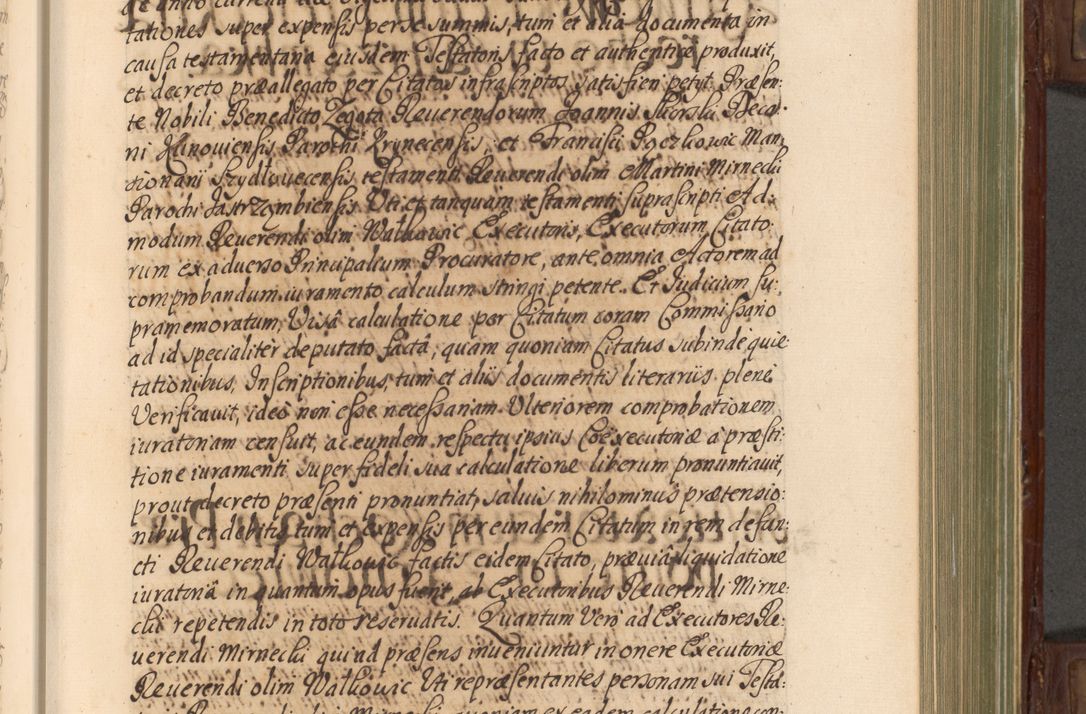 tationes super expensis per se summis, tum et alia documenta in
causa testamentaria eiusdem Testatoris facto et authentice produxit,
et decreto præallegato per Citatos infrascriptos satisfieri petyt. Præsen-
te Nobili Benedicto Zegota Reuerendorum Joannis Skorski Deca-
ni Parochi Krynecensis, et Francisci Man-
sionarii Szydlouecensis testamenti Reuerendi olim Martini Mirnecki
Parochi Jastrzembiensis Uti et tanquam testamenti suprascripti Ad-
modum Reuerendi olim Walkowic Executoris, Executorum Citato-
rum ex aduerso Principalium Procuratore, ante omnia Actorem ad
comprobandum iuramento calculum stringi petente. Et Judicium su-
pramemoratum, Visâ calculatione per Citatum coram Commissario
ad id specialiter deputato factâ, quam quoniam Citatus subinde quie-
tationibus, Inscriptionibus, tum et aliis documentis literariis plenè
Verificauit, ideò non esse necessariam Ulteriorem comprobationem
iuratoriam censuit, ac eundem respectu ipsius Coexecutoriæ à præsti-
tione iuramenti super fideli sua calculatione liberum pronuntiauit,
prout decreto præsenti pronuntiat, saluis nihilominus prætensio-
nibus et debitis tum et expensis per eundem Citatum in rem defun-
cti Reuerendi Walkowic factis eidem Citato, præuiâ liquidatione
iuratoriâ in quantum opus fuerit, ab Executoribus Reuerendi Mirne-
cki repetendis in toto reseruatis. Quantum Verò ad Executores Re-
uerendi Mirnecki qui ad præsens inueniuntur in onere Executoriæ
Reuerendi olim Walkowic Uti repræsentantes personam sui Testa-